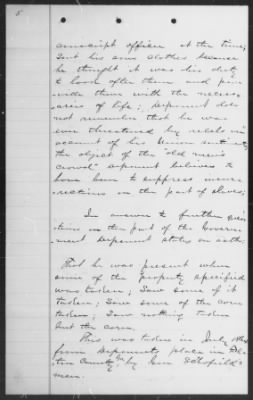 5
conscript officer at the time;
Sent his sons clothes because
he thought it was his duty
to look after them and pro-
vide them with the necess-
aries of life; Deponent does
not remember that he was
ever threatened by rebels on
account of his Union sentim
the object of the "old men's
crowd" deponent believes to
have been to suppress insur-
rections on the part of slaves;
In answer to further ques-
tions on the part of the Govern-
ment deponent states on oath:
That he was present when
some of the property specified
was taken; Saw some of it
taken; Saw some of the corn
taken; Saw nothing taken
but the corn.
This was taken in July
from deponents place in
County by Gen Schofield's
men.